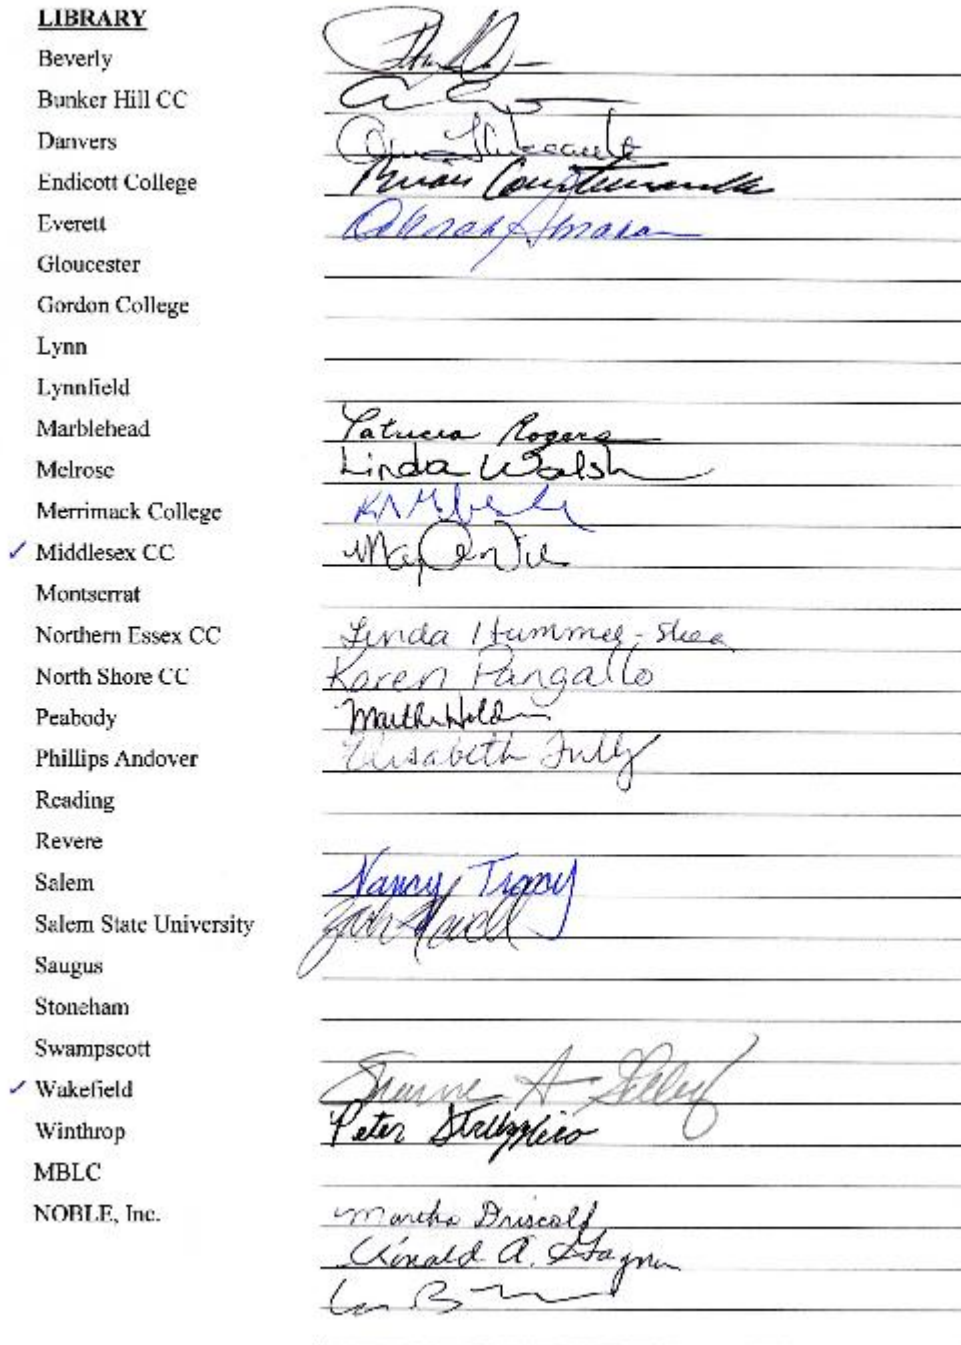 LIBRARY
Beverly
Bunker Hill CC
Danvers
Endicott College
Everett Deborah Abraham
Gloucester
Gordon College
Lynn
Lynnfield
Marblehead Patricia Rogers
Melrose Linda Walsh
Merrimack College
✓ Middlesex CC
Montserrat
Northern Essex CC Linda Hummel-Shea
North Shore CC Karen Pangallo
Peabody Martha Holden
Phillips Andover Elisabeth Tully
Reading
Revere
Salem Nancy Tracy
Salem State University
Saugus
Stoneham
Swampscott
✓ Wakefield Sharon A. Gilley
Winthrop Peter Struzziero
MBLC
NOBLE, Inc. Martha Driscoll
Ronald A. Gagnon